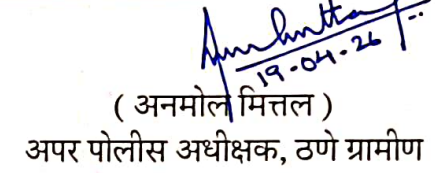 19-04-26
( अनमोल मित्तल )
अपर पोलीस अधीक्षक, ठाणे ग्रामीण